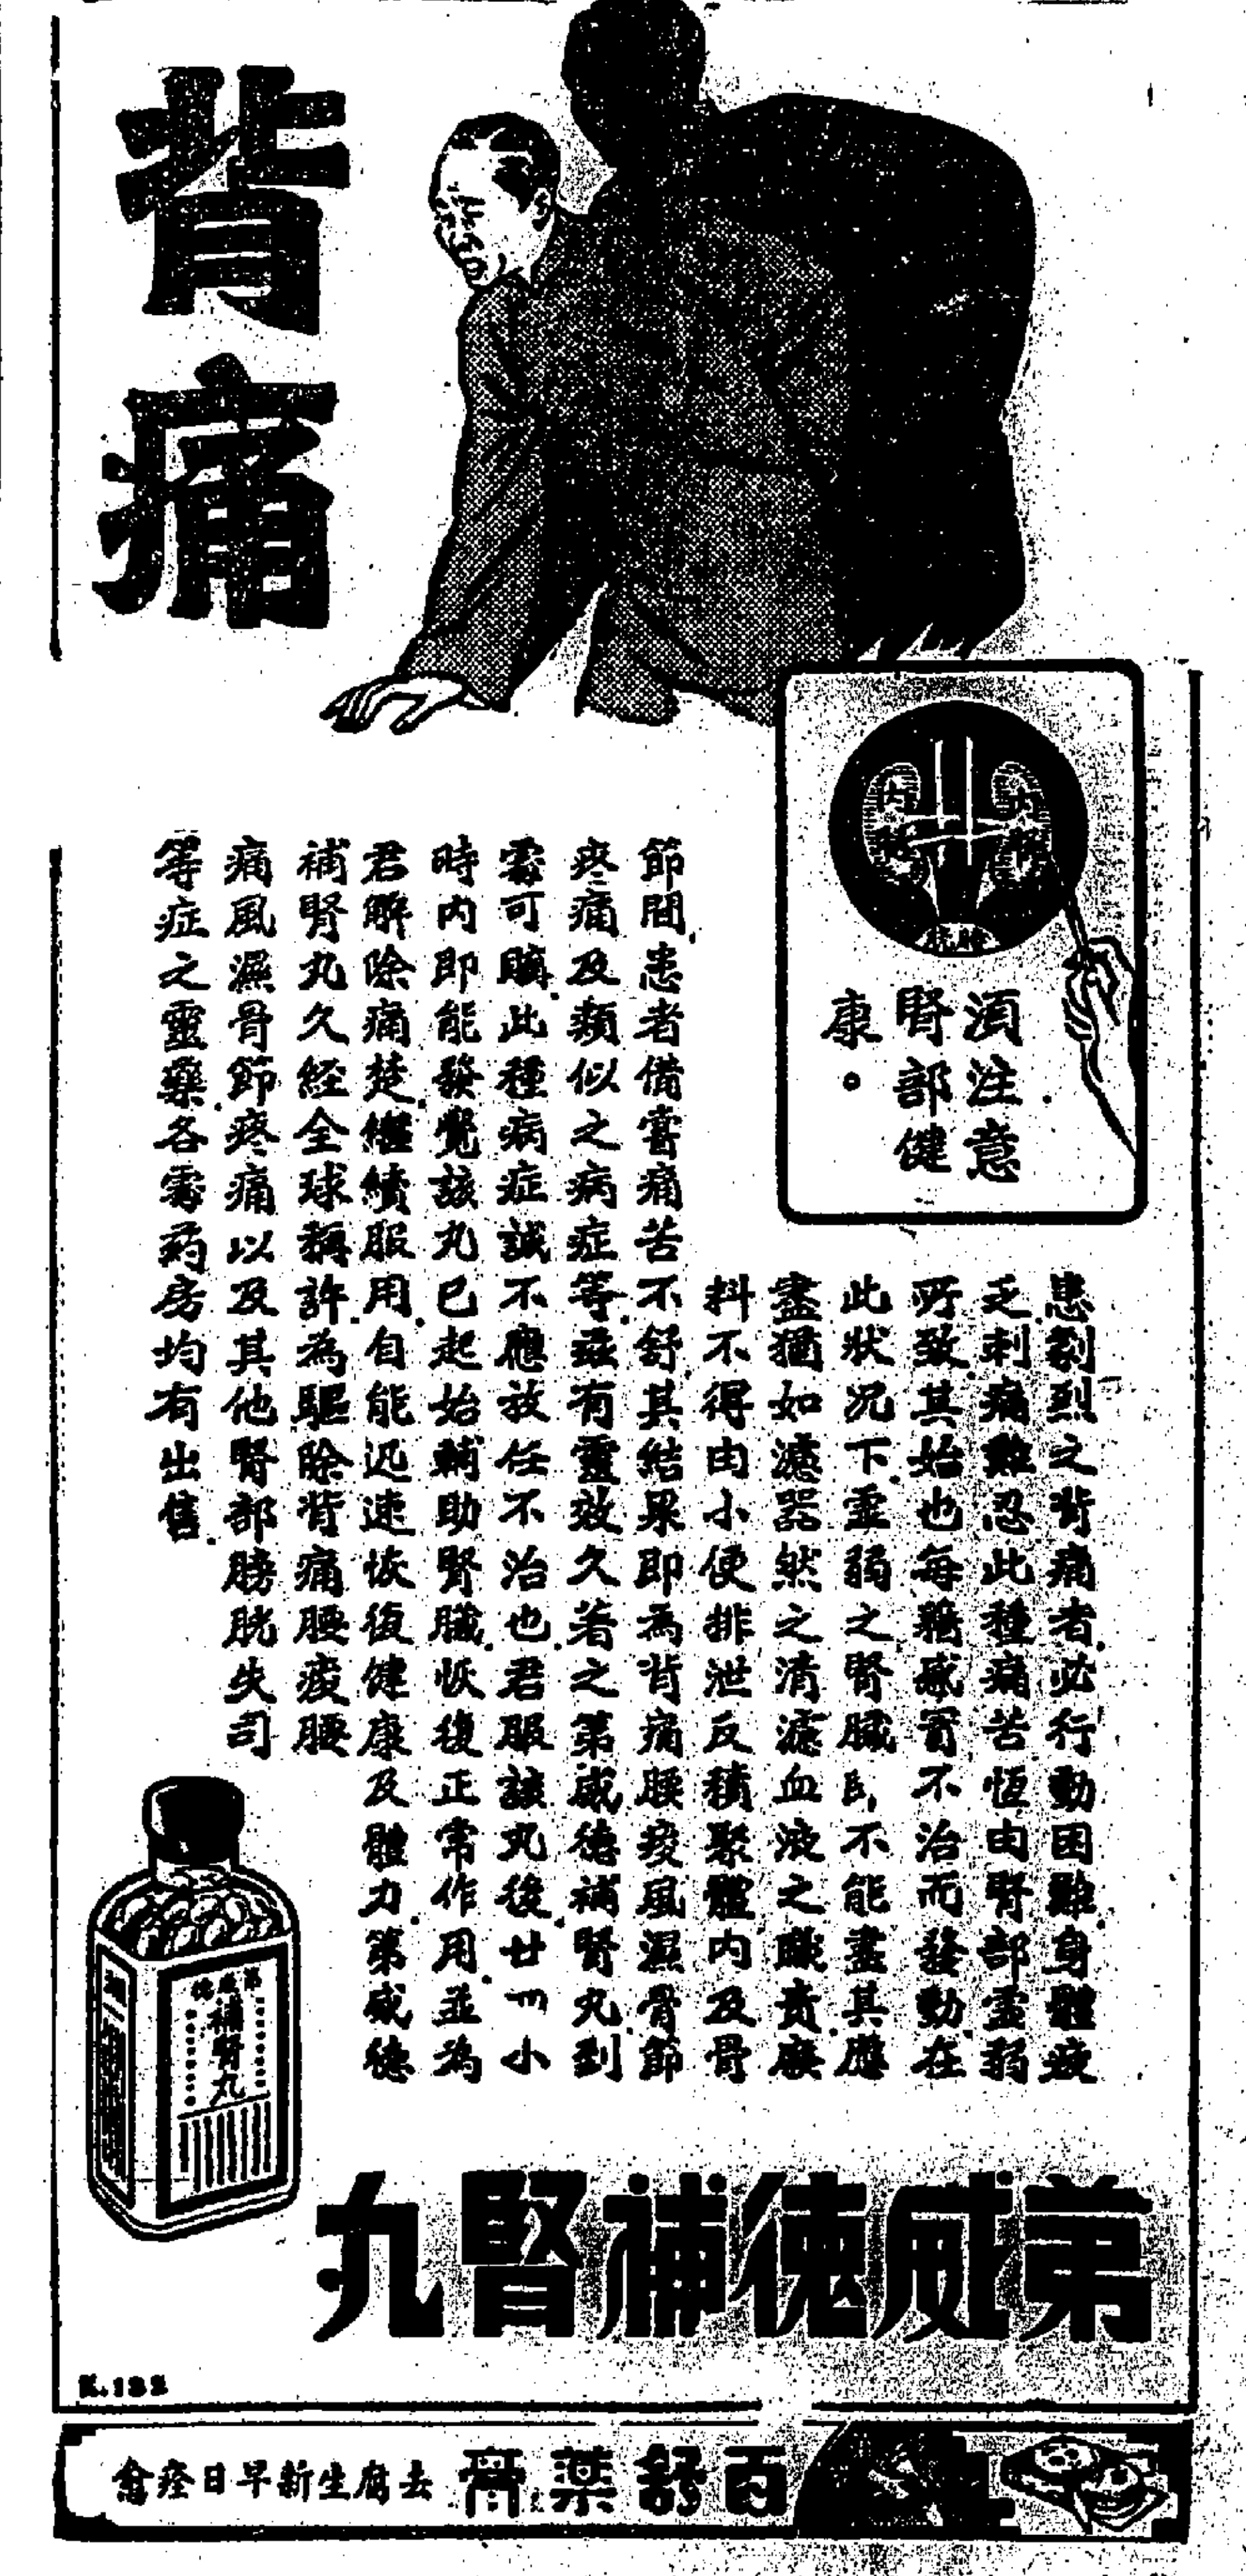 背痛
內腎
內腎
膀胱
須注意
腎部健
康。
患劇烈之背痛者.必行動困難.身體疲
乏.刺痛難忍.此種痛苦.恆由腎部虛弱
所致.其始也.每藉感冒不治而發動.在
此狀況下.虛弱之腎臟.卽不能盡其應
盡猶如濾器然之清濾血液之職責.廢
料不得由小便排泄.反積聚體內及骨
節間.患者備嘗痛苦不舒.其結果即為背痛腰痠風濕骨節
疼痛及類似之病症等.茲有靈效久著之第威德補腎丸.到
處可購.此種病症.誠不應放任不治也.君服該丸後.廿四小
時內即能發覺該丸已起始輔助腎臟.恢復正常作用.並為
君解除痛楚.繼續服用.自能迅速恢復健康及體力.第威德
補腎丸久經全球稱許.為驅除背痛腰痠腰
痛風濕骨節疼痛以及其他腎部膀胱失司
等症之靈藥.各處葯房均有出售.
第威德
補腎丸
第威德補腎丸
K.132
百舒藥膏 去腐生新早日痊愈